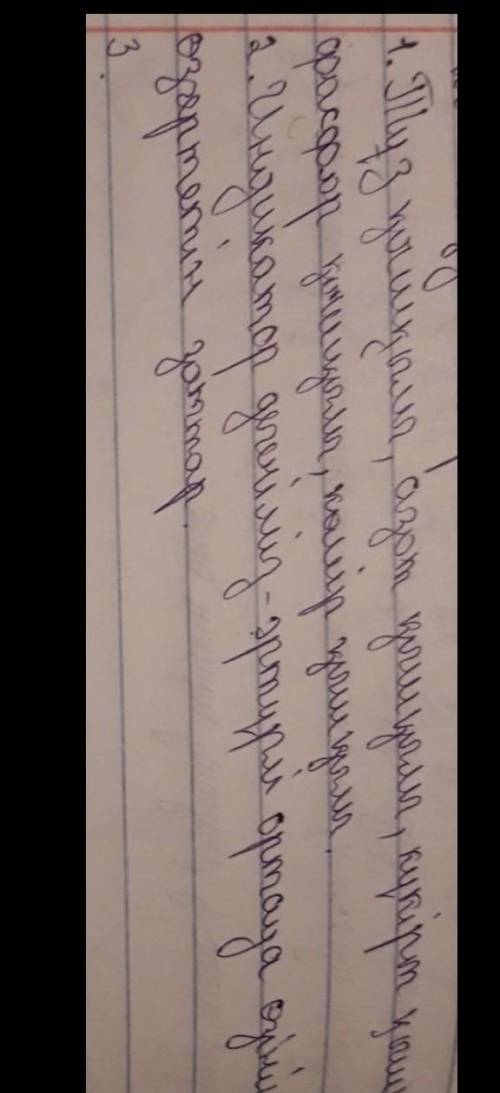 1. Тұз қышқылы, азот қышқылы, күкірт қыш
фосфор қышқылы, көмір қышқылы.
2. Индикатор дегеніміз - әртүрлі ортада өзіні
өзгертетін заттар.
3